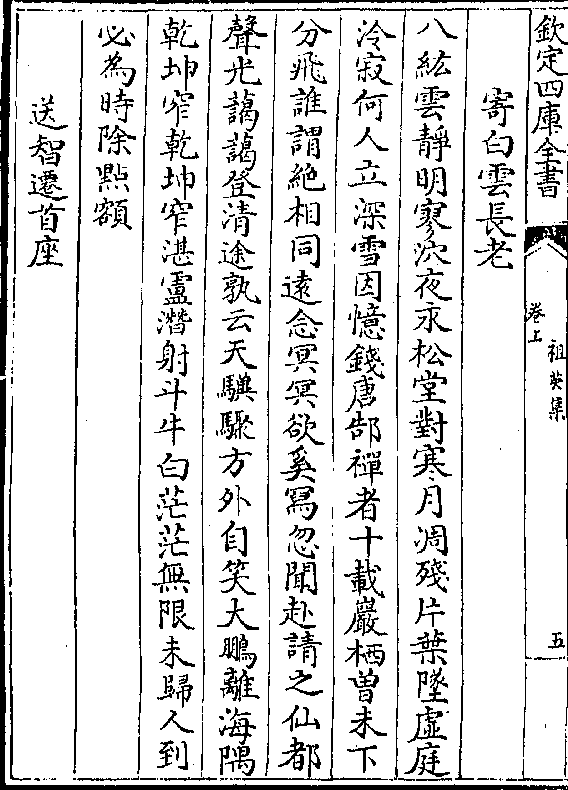 欽定四庫全書
祖英集
卷上
五
寄白雲長老
八紘雲靜明寥泬夜永松堂對寒月凋殘片葉墜虛庭
泠寂何人立深雪因憶錢唐郜禪者十載巖栖曽未下
分飛誰謂絶相同遠念冥冥欲奚冩忽聞赴請之仙都
聲光藹藹登清途孰云天驥驟方外自笑大鵬離海隅
乾坤窄乾坤窄湛盧潛射斗牛白茫茫無限未歸人到
必為時除㸃額
送智遷首座